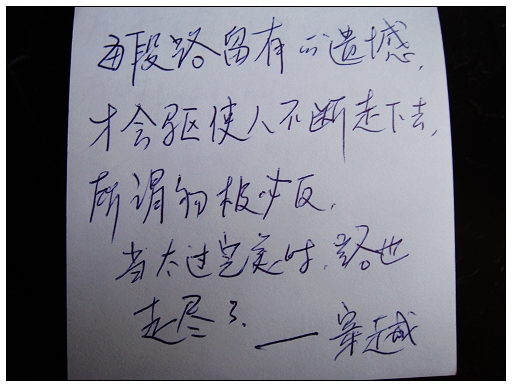 每段路留有的遗憾,
才会驱使人不断走下去,
所谓物极必反,
当太过完美时,路也
走尽了.
——穿越